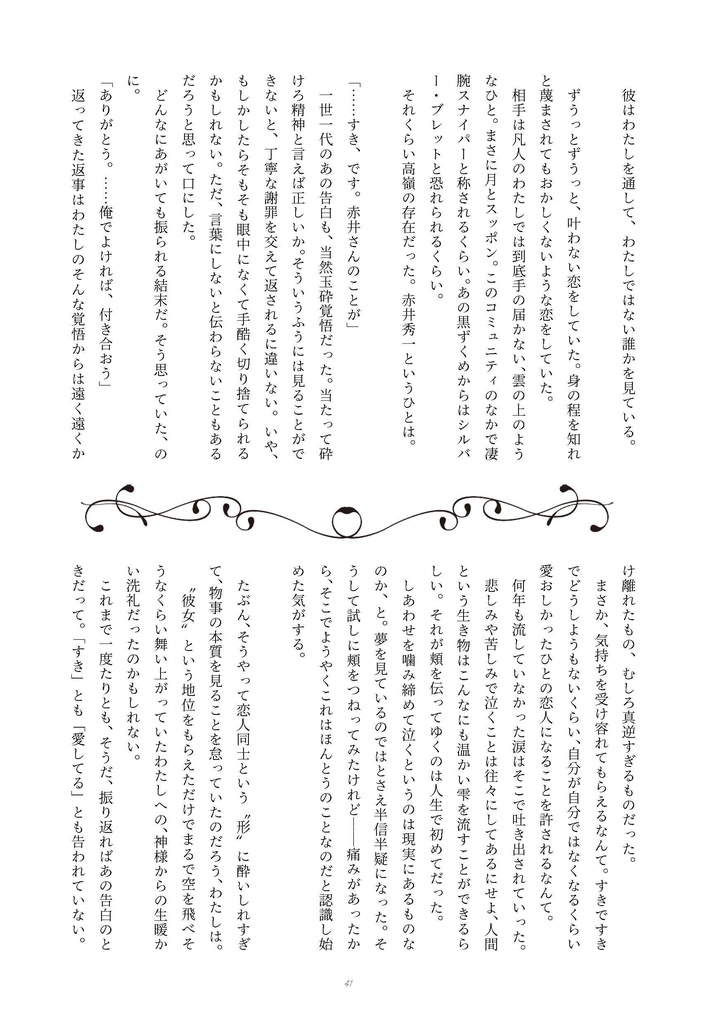 彼はわたしを通して、わたしではない誰かを見ている。
ずうっとずうっと、叶わない恋をしていた。身の程を知れ
と蔑まされてもおかしくないような恋をしていた。
相手は凡人のわたしでは到底手の届かない、雲の上のよう
なひと。まさに月とスッポン。このコミュニティのなかで凄
腕スナイパーと称されるくらい。あの黒ずくめからはシルバ
ー・ブレットと恐れられるくらい。
それくらい高嶺の存在だった。赤井秀一というひとは。
「……すき、です。赤井さんのことが」
一世一代のあの告白も、当然玉砕覚悟だった。当たって砕
けろ精神と言えば正しいか。そういうふうには見ることがで
きないと、丁寧な謝罪を交えて返されるに違いない。いや、
もしかしたらそもそも眼中になくて手酷く切り捨てられる
かもしれない。ただ、言葉にしないと伝わらないこともある
だろうと思って口にした。
どんなにあがいても振られる結末だ。そう思っていた、の
に。
「ありがとう。……俺でよければ、付き合おう」
返ってきた返事はわたしのそんな覚悟からは遠く遠くか
け離れたもの、むしろ真逆すぎるものだった。
まさか、気持ちを受け容れてもらえるなんて。すきですき
でどうしようもないくらい、自分が自分ではなくなるくらい
愛おしかったひとの恋人になることを許されるなんて。
何年も流していなかった涙はそこで吐き出されていった。
悲しみや苦しみで泣くことは往々にしてあるにせよ、人間
という生き物はこんなにも温かい雫を流すことができるら
しい。それが頬を伝ってゆくのは人生で初めてだった。
しあわせを噛み締めて泣くというのは現実にあるものな
のか、と。夢を見ているのではとさえ半信半疑になった。そ
うして試しに頬をつねってみたけれど――痛みがあったか
ら、そこでようやくこれはほんとうのことなのだと認識し始
めた気がする。
たぶん、そうやって恋人同士という〝形〟に酔いしれすぎ
て、物事の本質を見ることを怠っていたのだろう、わたしは。
〝彼女〟という地位をもらえただけでまるで空を飛べそ
うなくらい舞い上がっていたわたしへの、神様からの生暖か
い洗礼だったのかもしれない。
これまで一度たりとも、そうだ、振り返ればあの告白のと
きだって。「すき」とも「愛してる」とも告われていない。
41